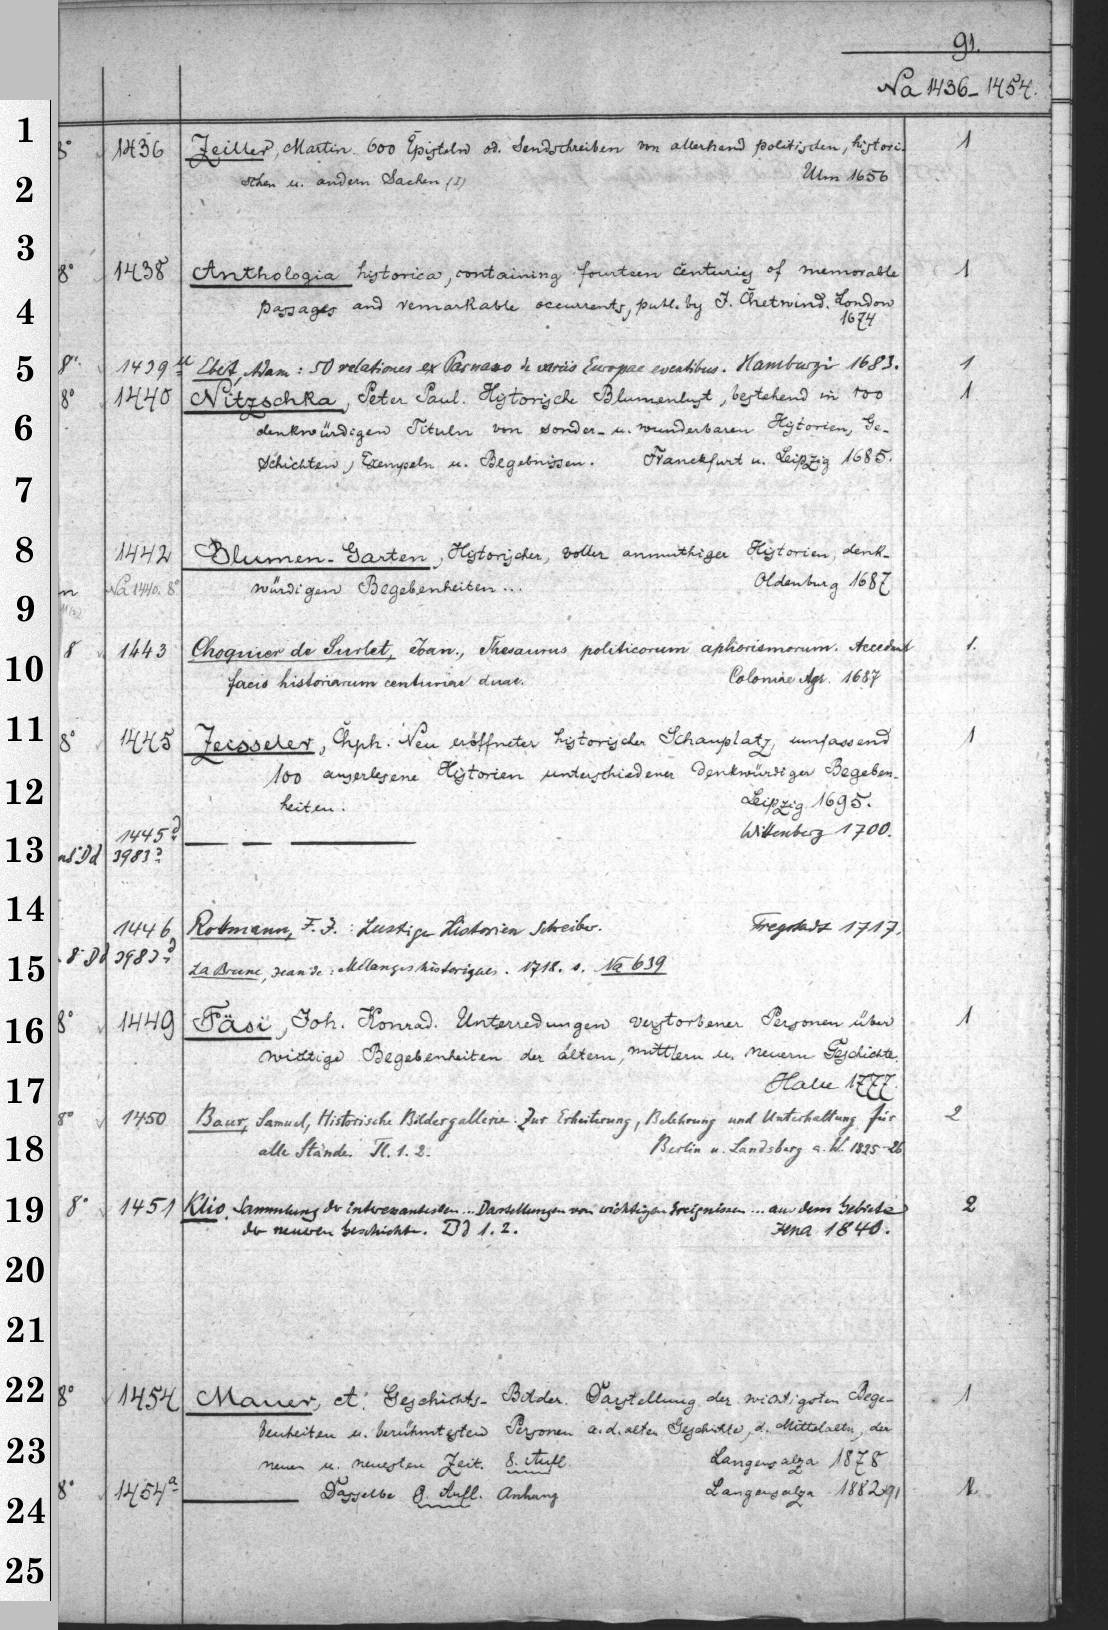 91.
Na 1436-1454.
1
8° 1436 Zeiller, Martin. 600 Episteln od. Sendschreiben von allerhand politischen, histori- 1
2
schen u. andern Sachen (I) Ulm 1656
3
8° 1438 Anthologia historica, containing fourteen centuries of memorable 1
4
passages and remarkable occurrents, publ. by J. Chetwind. London
1674
5
8° 1439 Ebert, Adam: 50 relationes ex Parnasso de variis Europae eventibus. Hamburgi 1683. 1
8° 1440 Nitzschka, Peter Paul. Historische Blumenlust, bestehend in 100 1
6
denkwürdigen Tituln von sonder- u. wunderbaren Historien, Ge-
schichten, Exempeln u. Begebnissen. Franckfurt u. Leipzig 1685.
7
8
1442 Blumen-Garten, Historischer, voller anmuthiger Historien, denk-
Na 1440. 8° würdigen Begebenheiten... Oldenburg 1687
9
8 1443 Choquier de Surlet, Ioan., Thesaurus politicorum aphorismorum. Accedunt 1.
10
historiarum centuriae duae. Coloniae Agr. 1687
11
8° 1445 Zeisseler, Chph. Neu eröffneter historischer Schauplatz, umfassend 1
100 auserlesene Historien unterschiedener denkwürdiger Begeben-
12
heiten. Leipzig 1695.
1445 Wittenberg 1700.
13
8° Dd 3983
14
1446 Rotmann, F. J.: Lustige Historien Schreiber. 1717.
8° Dd 3983
15
La Brune, Jean de: Mélanges historiques. 1718. s. Na 639
16
8° 1449 Fäsi, Joh. Konrad. Unterredungen verstorbener Personen über 1
wichtige Begebenheiten der ältern, mittlern u. neuern Geschichte.
17
Halle 1777.
8° 1450 Baur, Samuel, Historische Bildergallerie. Zur Erheiterung, Belehrung und Unterhaltung für 2
18
alle Stände. Tl. 1. 2. Berlin u. Landsberg a. W. 1825-26
19
8° 1451 Klio. Sammlung der interessantesten... Darstellungen von wichtigen Ereignissen... aus dem Gebiete 2
der neueren Geschichte. Bd 1. 2. Jena 1840.
20
21
22
8° 1454 Mauer, A. Geschichts-Bilder. Darstellung der wichtigsten Bege- 1
benheiten u. berühmtesten Personen a. d. alten Geschichte, d. Mittelalters, der
23
neuen u. neuesten Zeit. 8. Aufl. Langensalza 1878
8° 1454a Dasselbe 9. Aufl. Anhang Langensalza 1882
24
25